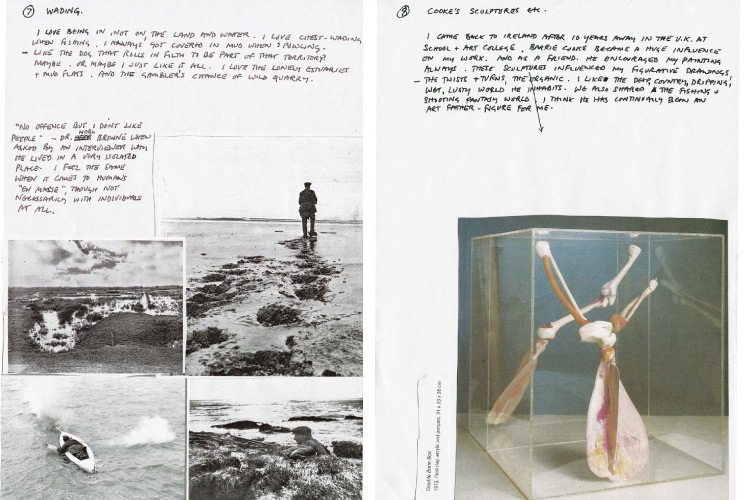 ⑦ WADING.
I LOVE BEING IN, NOT ON, THE LAND AND WATER. I LOVE CHEST-WADING
WHEN FISHING. I ALWAYS GOT COVERED IN MUD WHEN FOWLING.
- LIKE THE DOG THAT ROLLS IN FILTH TO BE PART OF THAT TERRITORY
MAYBE. OR MAYBE I JUST LIKE IT ALL. I LOVE THE LONELY ESTUARIES
+ MUD FLATS. AND THE GAMBLER'S CHANCE OF WILD QUARRY.
"NO OFFENCE BUT I DON'T LIKE
PEOPLE" - DR. NOEL BROWNE WHEN
ASKED BY AN INTERVIEWER WHY
HE LIVED IN A VERY ISOLATED
PLACE. I FEEL THE SAME
WHEN IT COMES TO HUMANS
"EN MASSE", THOUGH NOT
NECESSARILY WITH INDIVIDUALS
AT ALL.
⑧ COOKE'S SCULPTURES ETC.
I CAME BACK TO IRELAND AFTER 10 YEARS AWAY IN THE U.K. AT
SCHOOL + ART COLLEGE. BARRIE COOKE BECAME A HUGE INFLUENCE
ON MY WORK. AND AS A FRIEND. HE ENCOURAGED MY PAINTING
ALWAYS. THESE SCULPTURES INFLUENCED MY FIGURATIVE DRAWINGS
- THE TWISTS + TURNS, THE ORGANIC. I LIKED THE DEEP, COUNTRY, DRIPPING,
WET, LUSTY WORLD HE INHABITS. WE ALSO SHARED A THE FISHING +
SHOOTING FANTASY WORLD. I THINK HE HAS CONTINUALLY BEEN AN
ART FATHER-FIGURE FOR ME.
Double Bone Box
1972, fired clay, acrylic and perspex, 24 x 33 x 26 cm